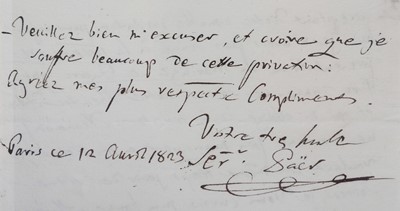 – Veuillez bien m'excuser, et croire que je
souffre beaucoup de cette privation:
Agriez mes plus respects Compliments.
Votre très humb
Paris ce 12 Avril 1823 Serr. Paër